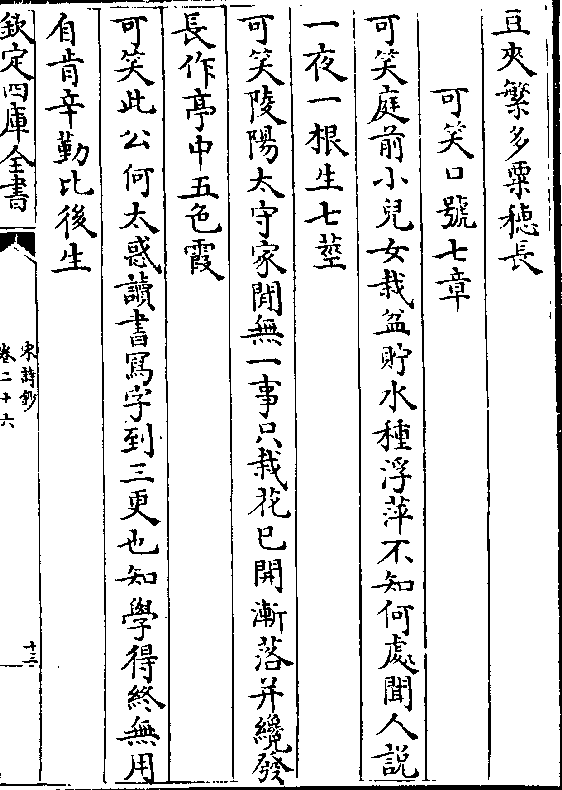 豆夾繁多粟穗長
可笑口號七章
可笑庭前小兒女栽盆貯水種浮萍不知何處聞人說
一夜一根生七莖
可笑陵陽太守家閒無一事只栽花已開漸落并纔發
長作亭中五色霞
可笑此公何太惑讀書寫字到三更也知學得終無用
自肯辛勤比後生
欽定四庫全書
宋詩鈔
卷二十六
十三